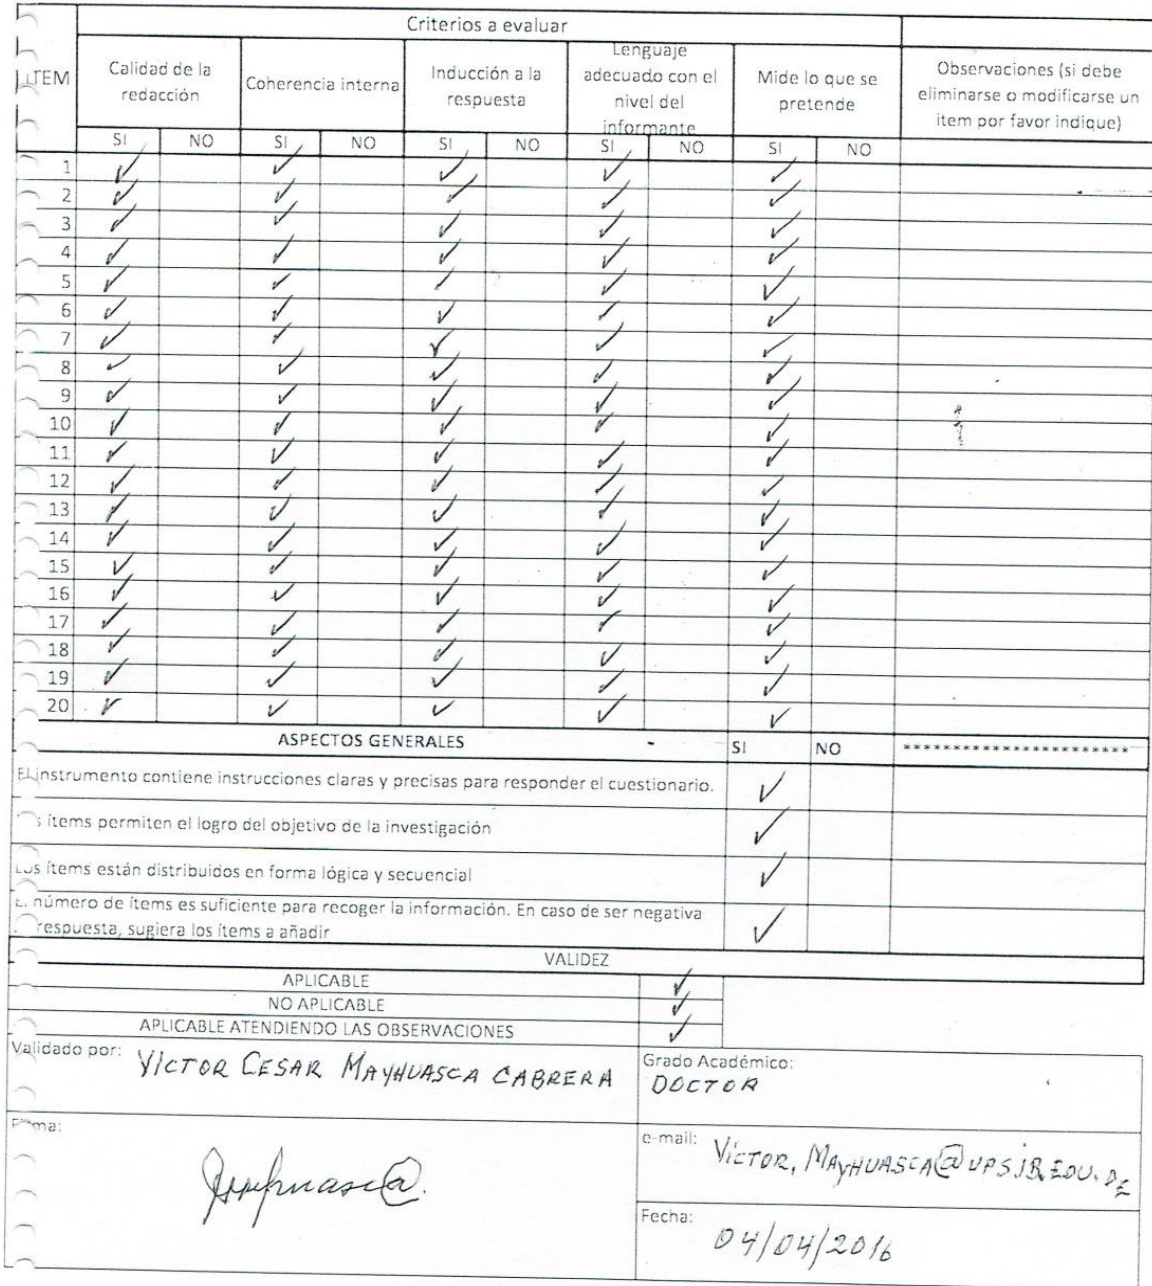 Criterios a evaluar
ITEM
Calidad de la
redacción
Coherencia interna
Inducción a la
respuesta
Lenguaje
adecuado con el
nivel del
informante
Mide lo que se
pretende
Observaciones (si debe
eliminarse o modificarse un
item por favor indique)
SI NO SI NO SI NO SI NO SI NO
1 ✓ ✓ ✓ ✓ ✓
2 ✓ ✓ ✓ ✓ ✓
3 ✓ ✓ ✓ ✓ ✓
4 ✓ ✓ ✓ ✓ ✓
5 ✓ ✓ ✓ ✓ ✓
6 ✓ ✓ ✓ ✓ ✓
7 ✓ ✓ ✓ ✓ ✓
8 ✓ ✓ ✓ ✓ ✓
9 ✓ ✓ ✓ ✓ ✓
10 ✓ ✓ ✓ ✓ ✓
11 ✓ ✓ ✓ ✓ ✓
12 ✓ ✓ ✓ ✓ ✓
13 ✓ ✓ ✓ ✓ ✓
14 ✓ ✓ ✓ ✓ ✓
15 ✓ ✓ ✓ ✓ ✓
16 ✓ ✓ ✓ ✓ ✓
17 ✓ ✓ ✓ ✓ ✓
18 ✓ ✓ ✓ ✓ ✓
19 ✓ ✓ ✓ ✓ ✓
20 ✓ ✓ ✓ ✓ ✓
ASPECTOS GENERALES SI NO ***********************
El instrumento contiene instrucciones claras y precisas para responder el cuestionario. ✓
ítems permiten el logro del objetivo de la investigación ✓
Los ítems están distribuidos en forma lógica y secuencial ✓
El número de ítems es suficiente para recoger la información. En caso de ser negativa
respuesta, sugiera los ítems a añadir ✓
VALIDEZ
APLICABLE ✓
NO APLICABLE ✓
APLICABLE ATENDIENDO LAS OBSERVACIONES ✓
Validado por: VICTOR CESAR MAYHUASCA CABRERA
Grado Académico:
DOCTOR
Firma:
e-mail: VICTOR, MAYHUASCA@UPSJB.EDU.DE
Fecha:
04/04/2016